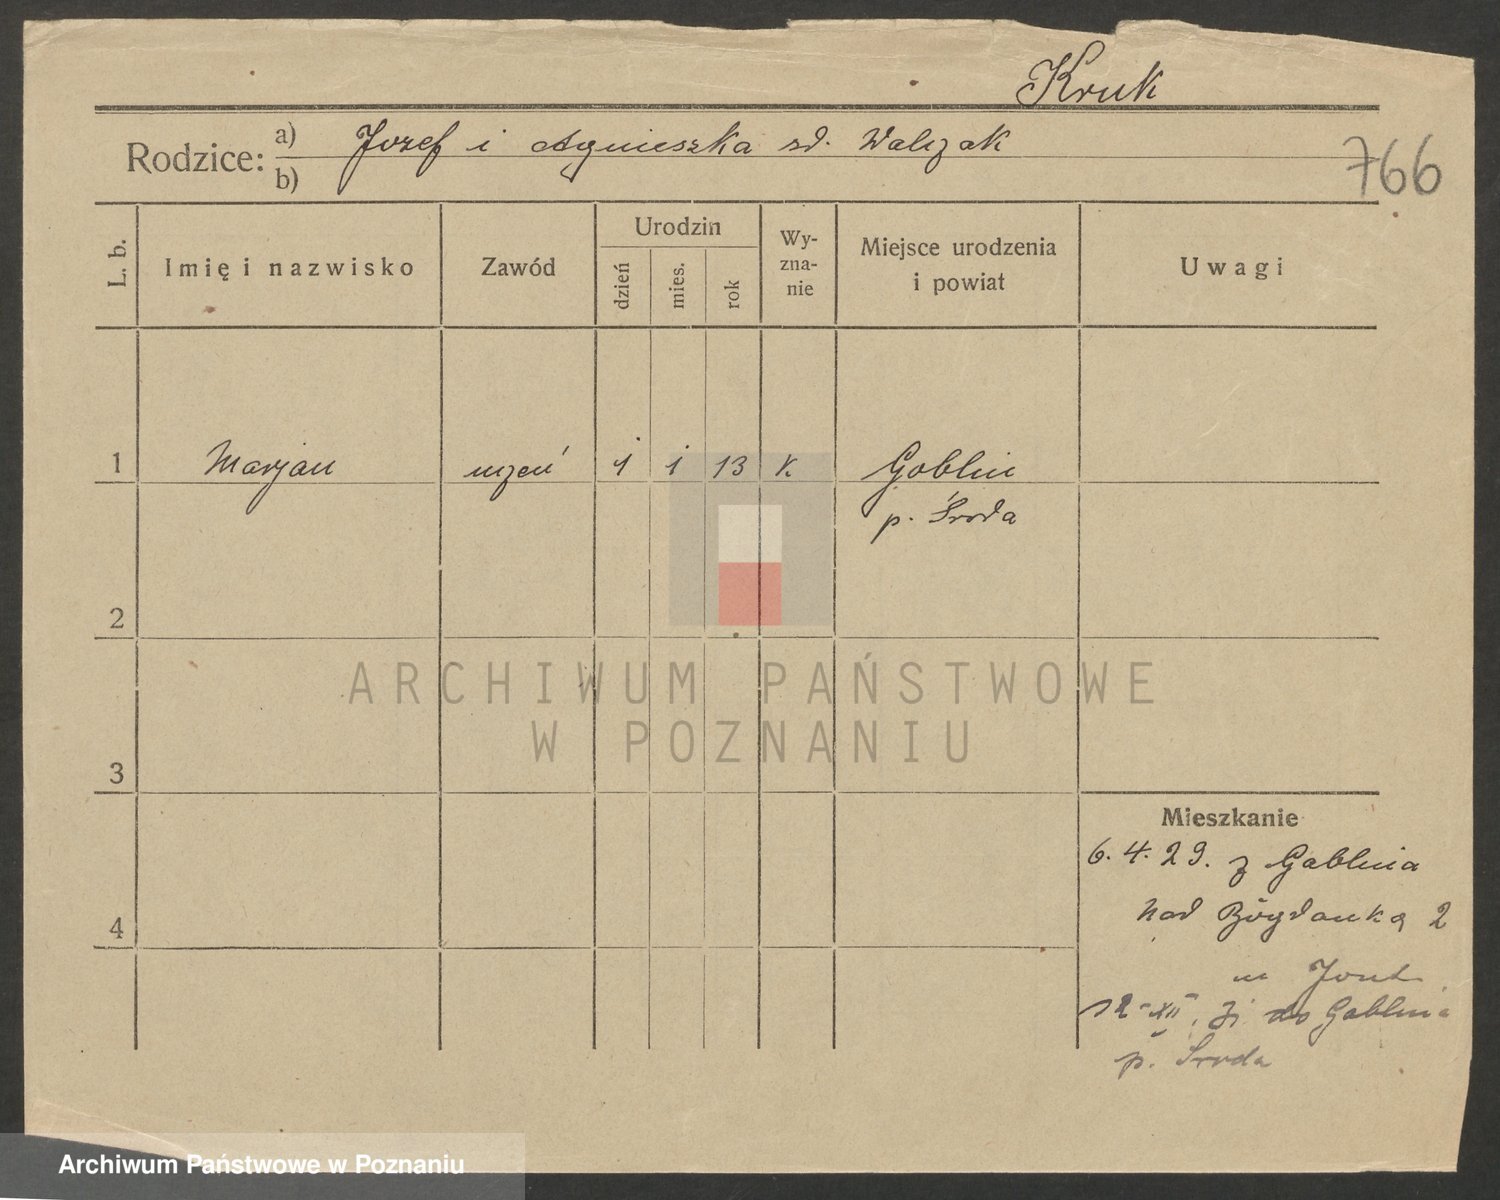 Kruk
Rodzice: a) Jozef i Agnieszka zd. Walczak
b)
766
L. b.
Imię i nazwisko
Zawód
Urodzin
dzień
mies.
rok
Wy-
zna-
nie
Miejsce urodzenia
i powiat
Uwagi
1 Marjan uczeń 1 1 13 k. Goblin
p. Środa
2
3
4
Mieszkanie
6. 4. 29. z Gablina
Nad Bogdanką 2
12-XII. do Gablina
p. Środa
ARCHIWUM PAŃSTWOWE
W POZNANIU
Archiwum Państwowe w Poznaniu